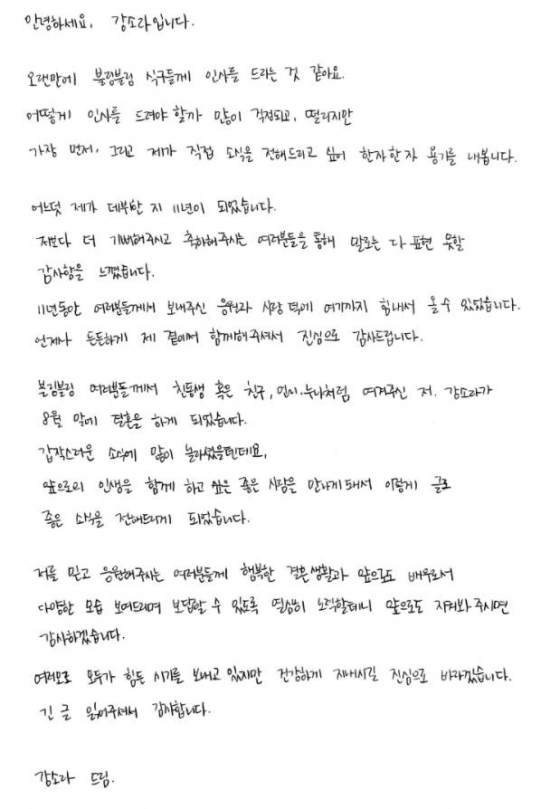 안녕하세요, 강소라입니다.
오랜만에 블링블링 식구들께 인사를 드리는 것 같아요.
어떻게 인사를 드려야 할까 많이 걱정되고, 떨리지만
가장 먼저, 그리고 제가 직접 소식을 전해드리고 싶어 한자한자 용기를 내봅니다.
어느덧 제가 데뷔한 지 11년이 되었습니다.
저보다 더 기뻐해주시고 축하해주시는 여러분들을 통해 말로는 다 표현 못할
감사함을 느꼈습니다.
11년동안 여러분들께서 보내주신 응원과 사랑 덕에 여기까지 힘내서 올 수 있었습니다.
언제나 든든하게 제 곁에서 함께해주셔서 진심으로 감사드립니다.
블링블링 여러분들께서 친동생 혹은 친구, 언니·누나처럼 여겨주신 저. 강소라가
8월 말에 결혼을 하게 되었습니다.
갑작스러운 소식에 많이 놀라셨을텐데요,
앞으로의 인생을 함께 하고 싶은 좋은 사람을 만나게 돼서 이렇게 글로
좋은 소식을 전해드리게 되었습니다.
저를 믿고 응원해주시는 여러분들께 행복한 결혼생활과 앞으로도 배우로서
다양한 모습 보여드리며 보답할 수 있도록 열심히 노력할테니 앞으로도 지켜봐주시면
감사하겠습니다.
여러모로 모두가 힘든 시기를 보내고 있지만 건강하게 지내시길 진심으로 바라겠습니다.
긴 글 읽어주셔서 감사합니다.
강소라 드림.